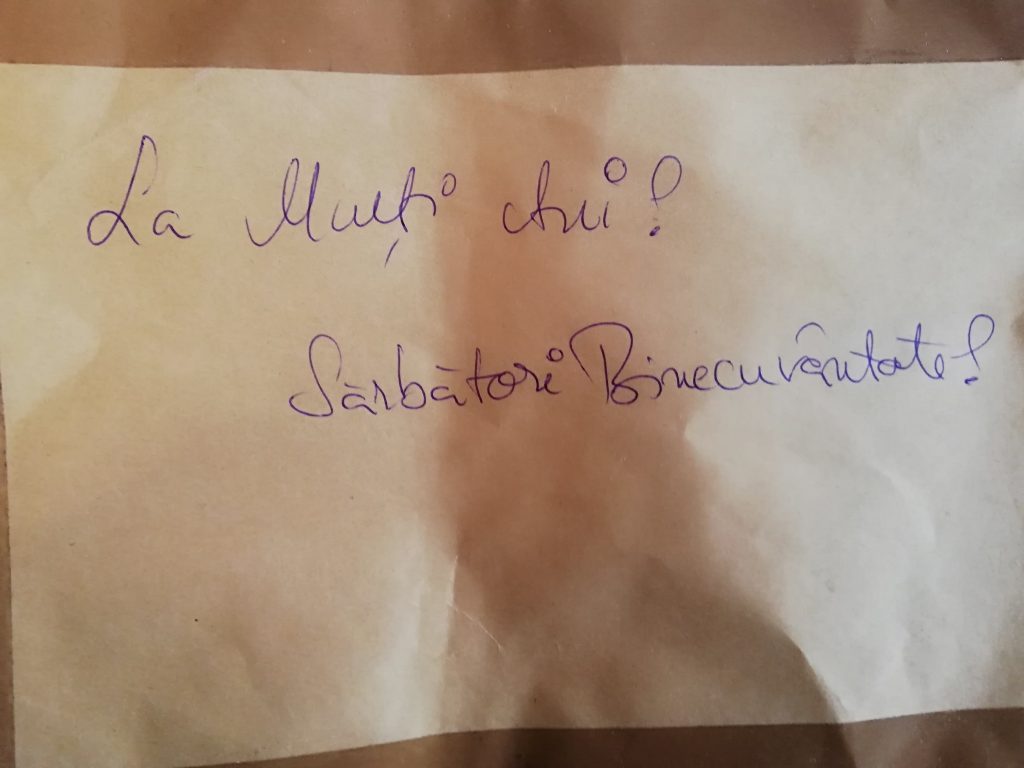 La Mulți Ani!
Sărbători Binecuvântate!